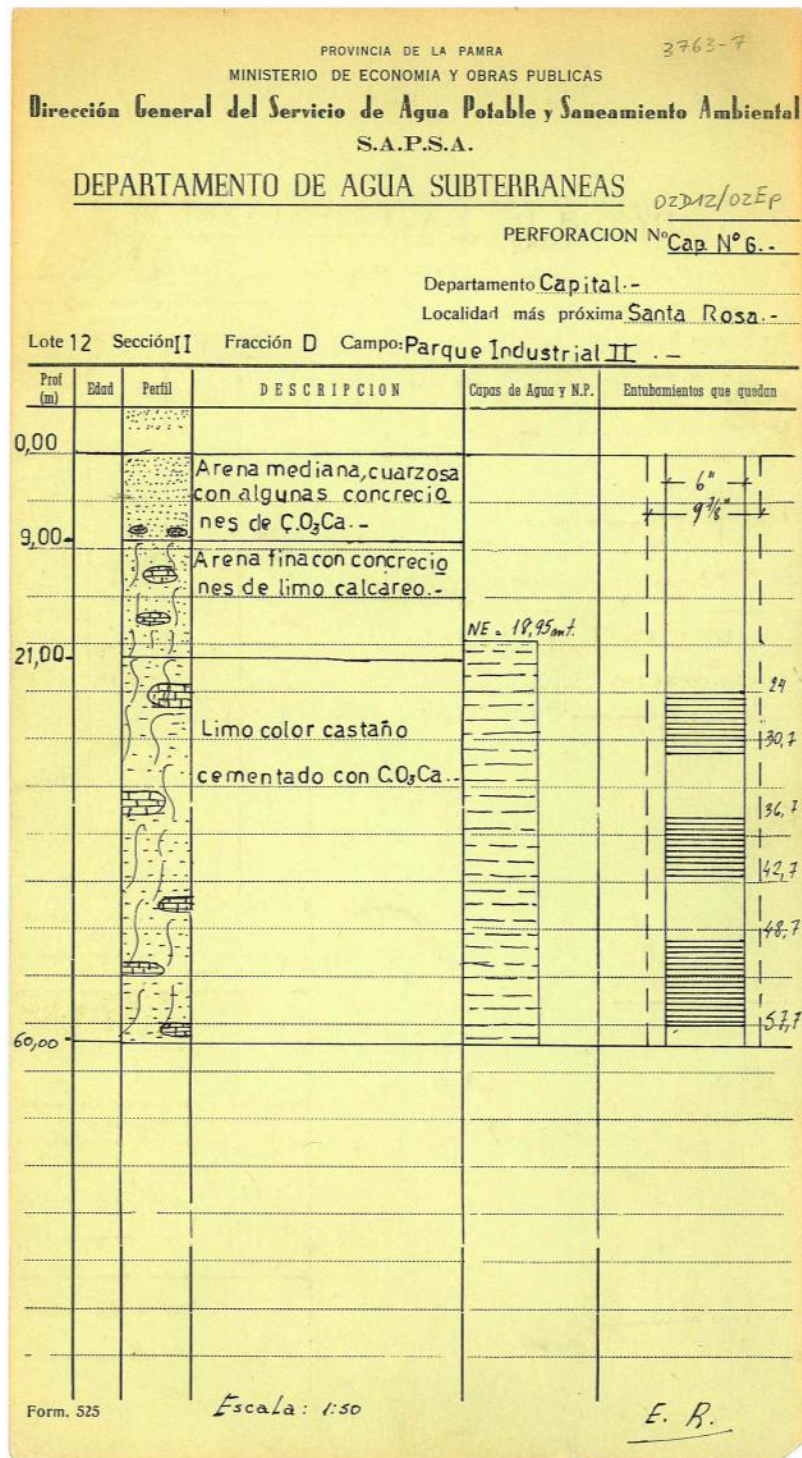 3763-7
PROVINCIA DE LA PAMRA
MINISTERIO DE ECONOMIA Y OBRAS PUBLICAS
Dirección General del Servicio de Agua Potable y Saneamiento Ambiental
S.A.P.S.A.
DEPARTAMENTO DE AGUA SUBTERRANEAS
02D12/02Ep
PERFORACION Nº Cap. Nº 6.-
Departamento Capital.-
Localidad más próxima Santa Rosa.-
Lote 12 Sección II Fracción D Campo: Parque Industrial II .-
Prof (m) Edad Perfil DESCRIPCION Capas de Agua y N.P. Entubamientos que quedan
0,00
Arena mediana, cuarzosa
con algunas concrecio
nes de C.O₃Ca.-
6"
9 7/8"
9,00
Arena fina con concrecio
nes de limo calcáreo.-
NE = 18,95 mt.
21,00
24
Limo color castaño
30,7
cementado con C.O₃Ca.-
36,7
42,7
48,7
57,7
60,00
Form. 525
Escala: 1:50
E. R.